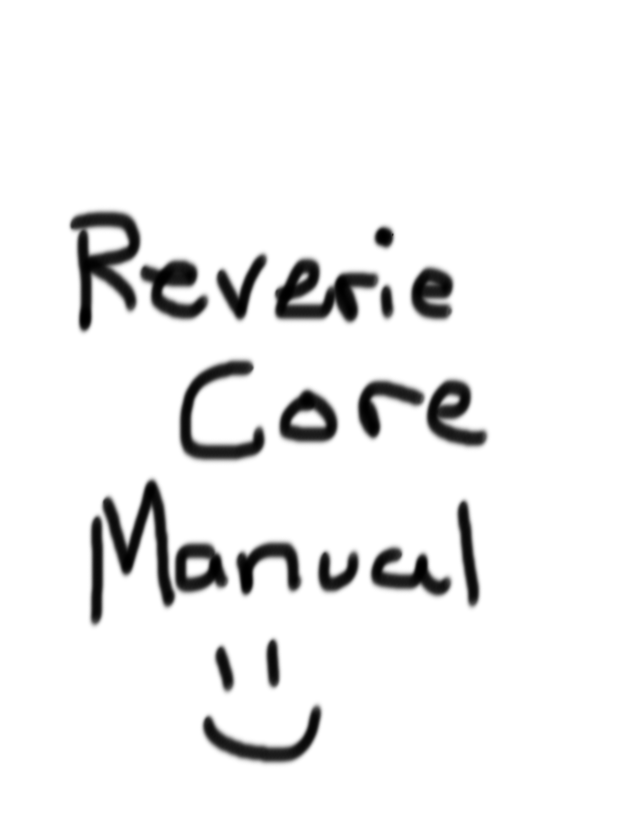 Reverie
Core
Manual